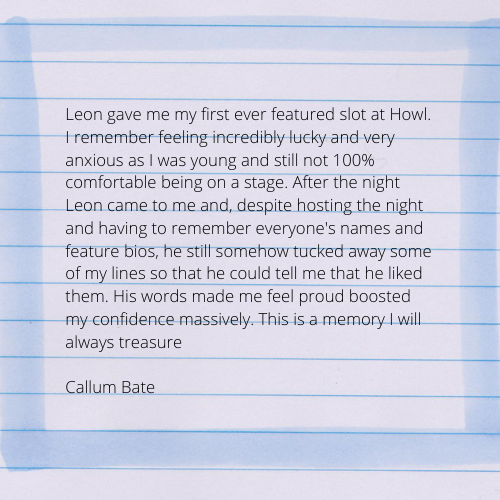 Leon gave me my first ever featured slot at Howl.
I remember feeling incredibly lucky and very
anxious as I was young and still not 100%
comfortable being on a stage. After the night
Leon came to me and, despite hosting the night
and having to remember everyone's names and
feature bios, he still somehow tucked away some
of my lines so that he could tell me that he liked
them. His words made me feel proud boosted
my confidence massively. This is a memory I will
always treasure
Callum Bate